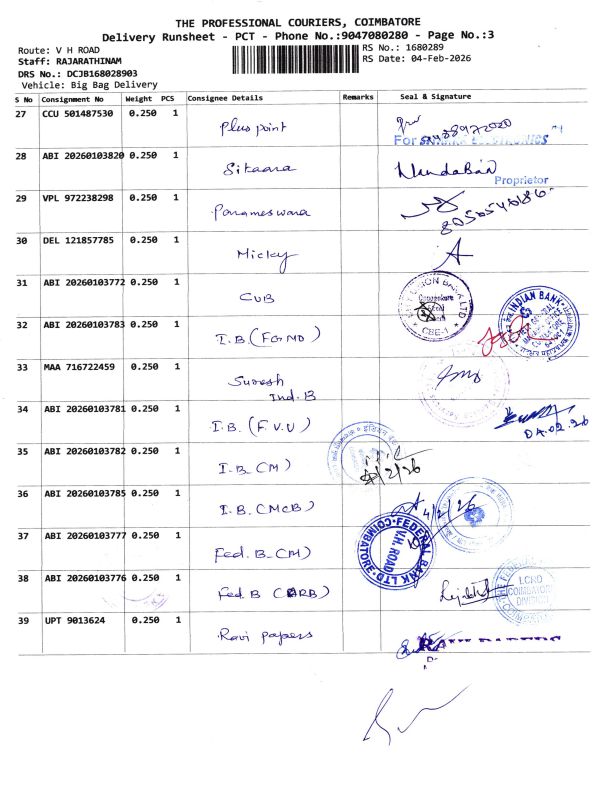 THE PROFESSIONAL COURIERS, COIMBATORE
Delivery Runsheet - PCT - Phone No.:9047080280 - Page No.:3
Route: V H ROAD
RS No.: 1680289
Staff: RAJARATHINAM
RS Date: 04-Feb-2026
DRS No.: DCJB168028903
Vehicle: Big Bag Delivery
S No Consignment No Weight PCS Consignee Details Remarks Seal & Signature
27 CCU 501487530 0.250 1 Plus point
For
28 ABI 20260103820 0.250 1 Sitaara
Proprietor
29 VPL 972238298 0.250 1 Parameswara
30 DEL 121857785 0.250 1 Micky
31 ABI 20260103772 0.250 1 CUB
UNION BANK LTD
CBE-1
32 ABI 20260103783 0.250 1 I.B (FGMO)
INDIAN BANK
33 MAA 716722459 0.250 1 Suresh
Ind.B
34 ABI 20260103781 0.250 1 I.B. (F.V.U)
04.02.26
35 ABI 20260103782 0.250 1 I.B (M)
4/2/26
36 ABI 20260103785 0.250 1 I.B. (MCB)
4/2/26
37 ABI 20260103777 0.250 1 Fed. B (M)
FEDERAL BANK LTD COIMBATORE
V.H. ROAD
38 ABI 20260103776 0.250 1 Fed. B
LCRD
COIMBATORE
DIVISION
39 UPT 9013624 0.250 1 Ravi papers